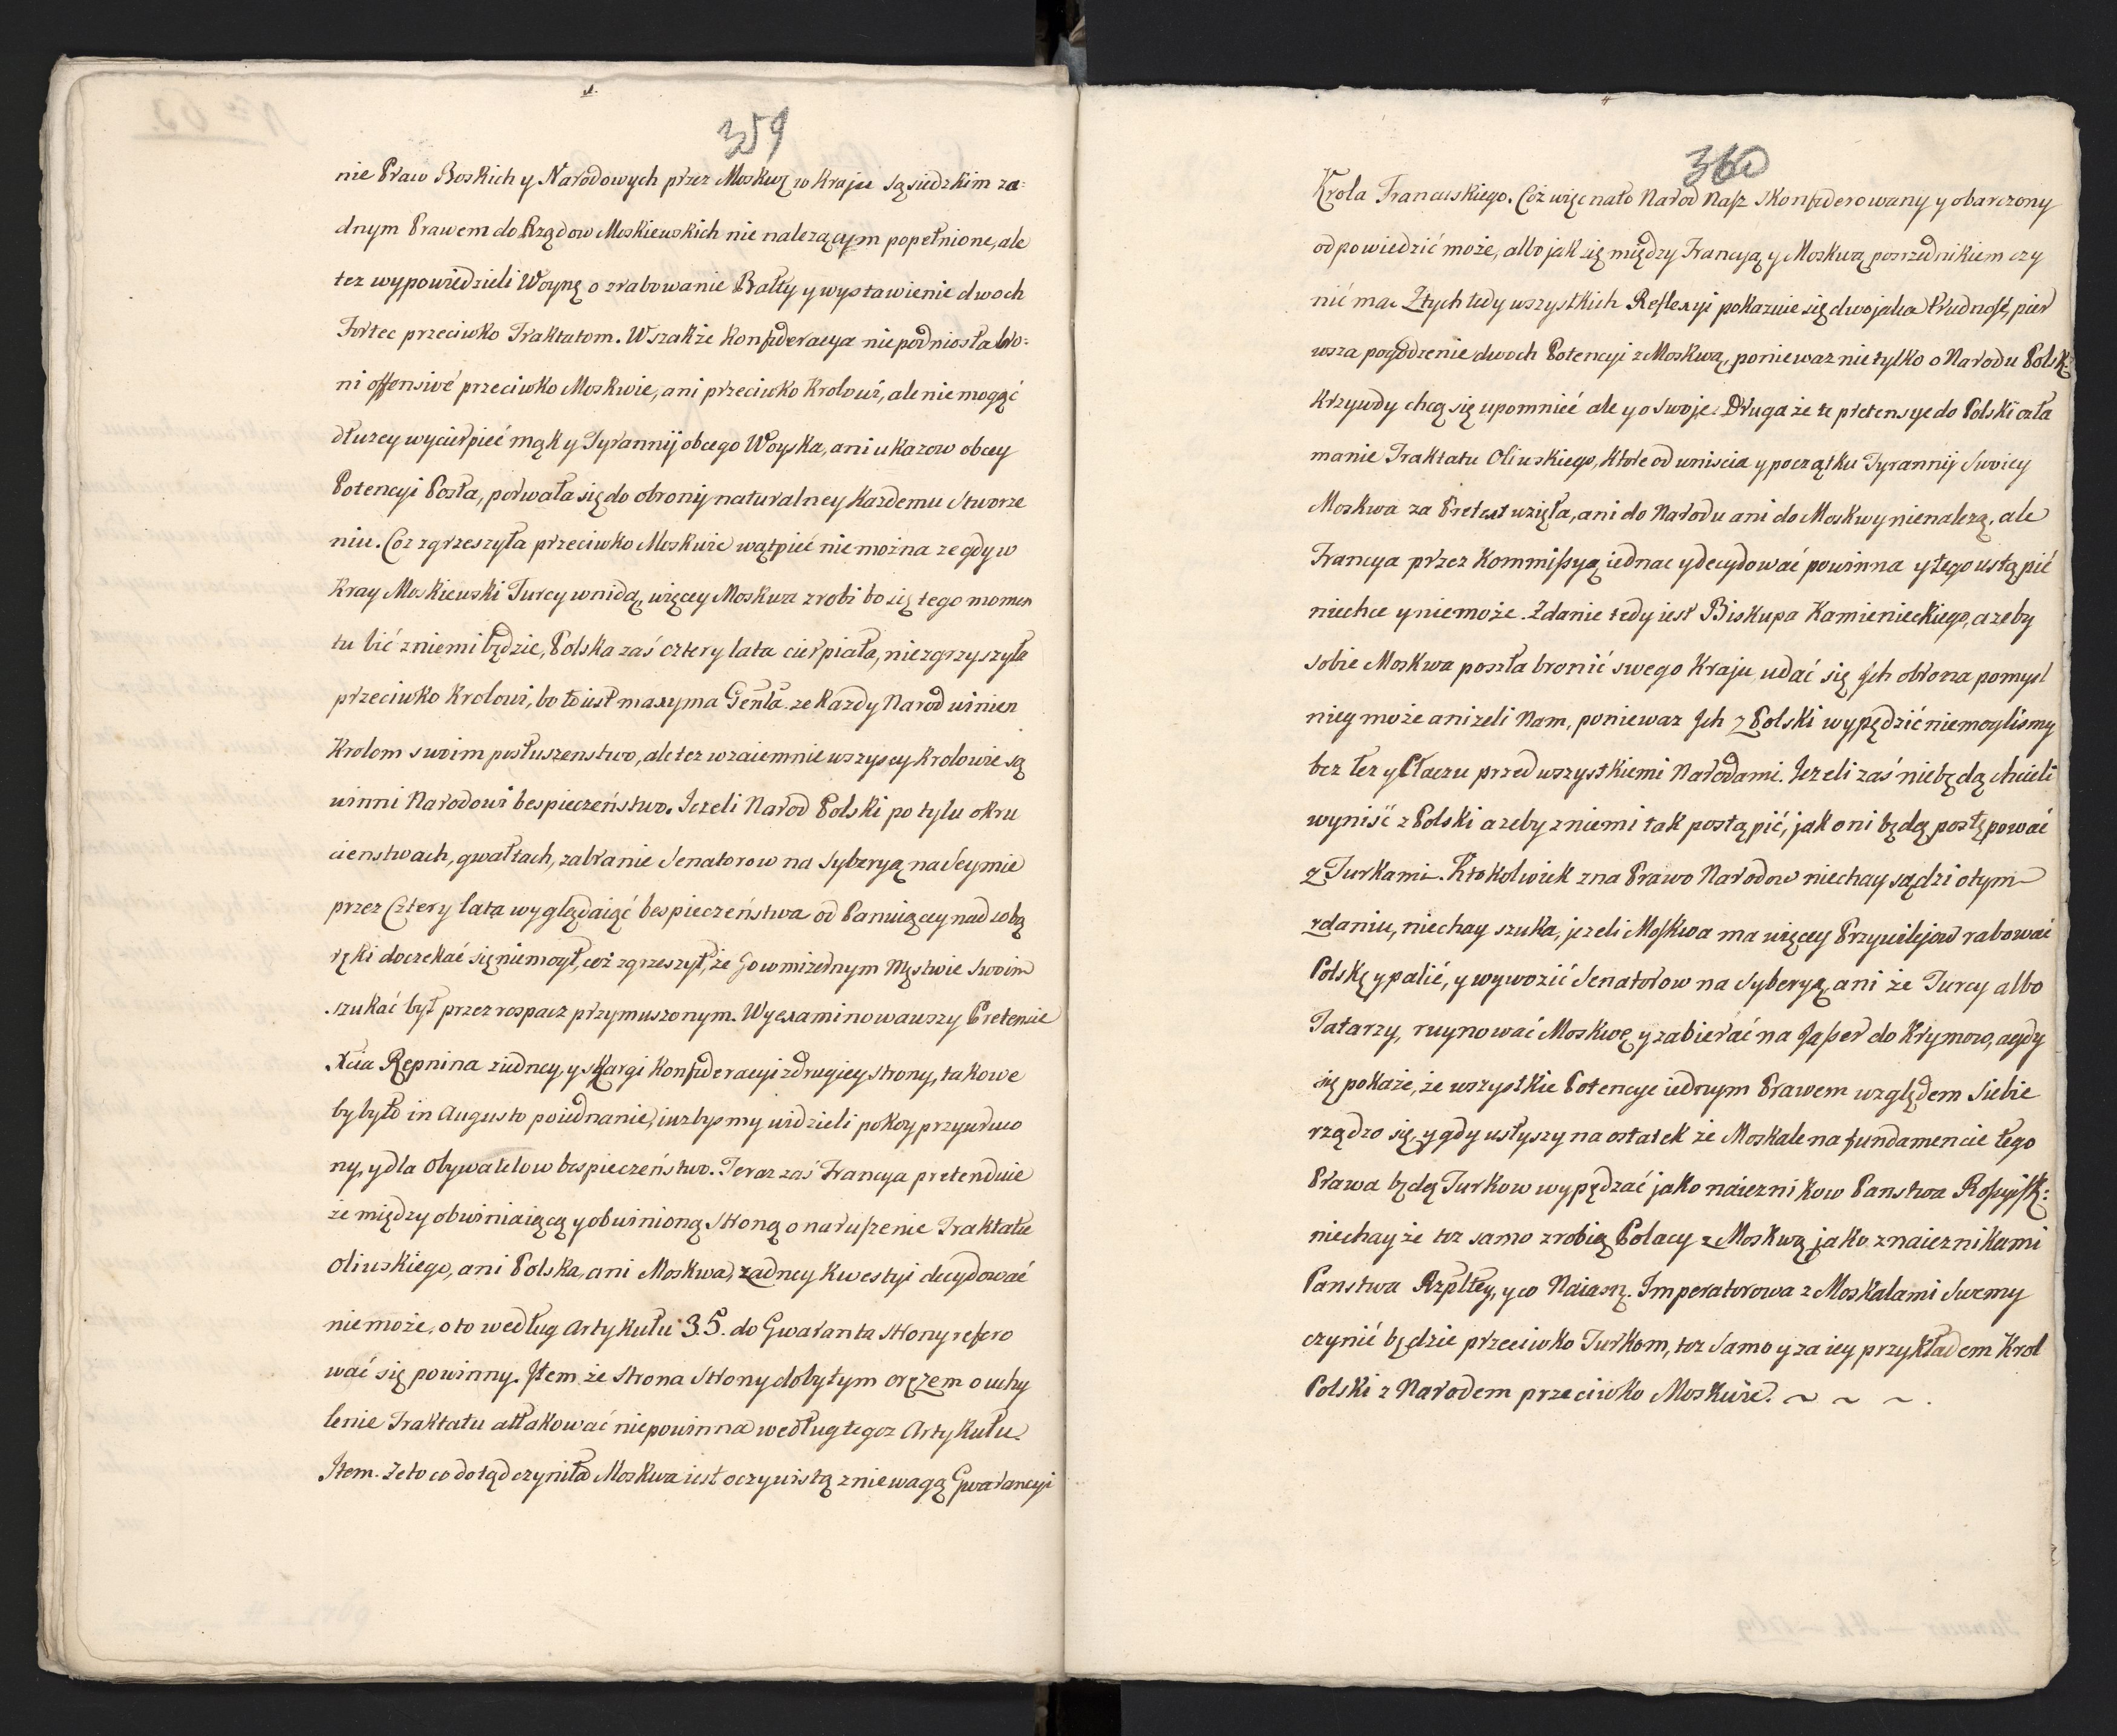 359
nie Praw Boskich y Narodowych przez Moskwę w kraju sąsiedzkim ża-
dnym Prawem do Rządow Moskiewskich nie nalezącym popełnione, ale
tez wypowiedzieli Woynę o zrabowanie Bałty y wystawienie dwoch
Fortec przeciwko Traktatom. Wszakże Konfideracya nie podniosła bro-
ni offensivé przeciwko Moskwie, ani przeciwko Krolowi, ale nie mogąć
dłuzey wycierpieć mąk y Tyrannij obcego Woyska, ani ukazow obcey
Potencyi Posła, porwała się do obrony naturalney Kazdemu Stworze
niu. Coż zgrzeszyła przeciwko Moskwie wątpieć nie można ze gdy w
Kray Moskiewski Turcy wnidą, więcey Moskwa zrobi bo się tego momen
tu bić z niemi będzie, Polska zaś cztery lata cierpiała, nie zgrzyszyła
przeciwko Krolowi, bo to iest maxyma Genła. ze Kazdy Narod winien
Krolom swoim posłuszenstwo, ale tez wzaiemnie wszyscy Krolowie są
winni Narodowi bespieczeństwo. Jezeli Narod Polski po tylu okru
cienstwach, gwałtach, zabranie Senatorow na Syberyą, na Seymie
przez Cztery lata wyglądaiąć bespieczeństwa od Panuiącey nad sobą
ręki doczekać się niemogł, coż zgrzeszył, że go w mizernym Męstwie Swoim
szukać był przez rospacz przymuszonym. Wyexaminowawszy Pretensie
Xcia Repnina ziedney, y skargi Konfideracyi z drugiey strony, takowe
by było in Augusto poiednanie, iuzbysmy widzieli pokoy przywruco
ny, y dla Obywatelow bespieczeństwo. Teraz zaś Francya pretenduie
że między obwiniaiącą y obwinioną Stroną o naruszenie Traktatu
Oliwskiego, ani Polska, ani Moskwa, żadney Kwestyi decydować
niemoże, oto według Artykułu 35. do Gwaranta Strony refero
wać się powinny. Item że Strona Strony dobytym orężem o uchy
lenie Traktatu attakować niepowinna według tegoz Artykułu.
Item. Ze to co dotąd czyniła Moskwa iest oczywistą zniewagą Gwarancyi
360
Krola Francuskiego. Coż więc nato Narod Nasz Skonfiderowany y obarczony
odpowiedzić może, albo jak się między Francyą y Moskwą pozrzednikiem czy
nić ma. Z tych tedy wszystkich Reflexyi pokazuie się dwojaka trudność, pier
wsza pogodzenie dwoch Potencyi z Moskwą, poniewaz nie tylko o Narodu Polsk:
Krzywdy chcą się upomnieć ale y o Swoje. Druga że te pretensye do Polski oła
manie Traktatu Oliwskiego, Ktore od wniscia y początku Tyrannij Swoiey
Moskwa za Pretext wzięła, ani do Narodu ani do Moskwy nienalezą, ale
Francya przez Kommissyą iednać y decydować powinna y tego ustąpić
niechce y niemoże. Zdanie tedy iest Biskupa Kamienieckiego, azeby
sobie Moskwa poszła bronić swego Kraju, udać się Ich obrona pomysl
niey może anizeli Nam, poniewaz Ich z Polski wypędzić niemoglismy
bez łez y Płaczu przed wszystkiemi Narodami. Jezeli zaś niebędą chcieli
wyniść z Polski azeby z niemi tak postąpić, jak oni będą postępować
z Turkami. Ktokolwiek zna Prawo Narodow niechay sądzi o tym
zdaniu, niechay szuka, jezeli Moskwa ma więcey Przywilejow rabować
Polskę y palić, y wywozić Senatorow na Syberyą, ani że Turcy albo
Tatarzy, ruynować Moskwę y zabierać na Jasser do Krymow, a gdy
się pokaże, że wszystkie Potencye iednym Prawem względem Siebie
rządzo się, y gdy usłyszy na ostatek że Moskale na fundamencie tego
Prawa będą Turkow wypędzać jako naieznikow Panstwa Rossyisk:
niechayże toz samo zrobią Polacy z Moskwą jako z naieznikami
Panstwa Rzpltey, y co Naiasn. Imperatorowa z Moskalami Swemy
czynić będzie przeciwko Turkom, toz Samo y za iey przykładem Krol
Polski z Narodem przeciwko Moskwie. ~ ~ ~.